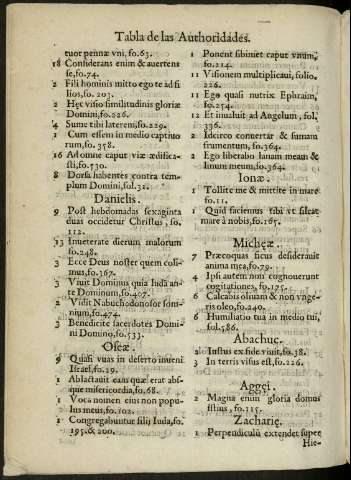 Tabla de las Authoridades.
tuor pennæ vni, fo.63.
18 Considerans enim & auertens
se, fo.74.
2 Fili hominis mitto ego te ad fi
lios, fo. 203.
2 Hęc visio similitudinis gloriæ
Domini, fo.226.
4 Sume tibi laterem, fo.229.
1 Cum essem in medio captiuo
rum, fo. 358.
16 Ad omne caput viæ ædifica-
sti, fo.530.
8 Dorsa habentes contra tem-
plum Domini, fol.31.
Danielis.
9 Post hebdomadas sexaginta
duas occidetur Christus, fo.
112.
13 Inueterate dierum malorum
fo.248.
3 Ecce Deus noster quem coli-
mus, fo.367.
3 Viuit Dominus quia Iudá an-
te Dominum, fo.407.
2 Vidit Nabuchodonosor som-
nium, fo.474.
3 Benedicite sacerdotes Domi-
ni Domino, fo.533.
Oseæ.
9 Quasi vuas in deserto inueni
Israel, fo.29.
1 Ablactauit eam quæ erat abs-
que misericordia, fo.68.
1 Voca nomen eius non popu-
lus meus, fo.102.
1 Congregabuntur filij Iuda, fo.
195. & 200.
1 Ponent sibimet caput vnum,
fo.214.
11 Visionem multiplicaui, folio.
226.
11 Ego quasi nutrix Ephraim,
fo.254.
12 Et inualuit ad Angelum, fol.
336.
2 Idcirco conuertar & sumam
frumentum, fo.364.
2 Ego liberabo lanam meam &
linum meum, fo.364.
Ionæ.
1 Tollite me & mittite in mare
fo.11.
1 Quid faciemus tibi vt cesset
mare à nobis, fo.165.
Micheæ.
7 Præcoquas ficus desiderauit
anima mea, fo.79.
4 Ipsi autem non cognouerunt
cogitationes, fo.175.
6 Calcabis oliuam & non vnge-
ris oleo, fo.240.
6 Humiliatio tua in medio tui,
fol.586.
Abachuc.
2 Iustus ex fide viuit, fo.38.
3 In terris visus est, fo.126.
Aggei.
2 Magna enim gloria domus
istius, fo.115.
Zachariæ.
1 Perpendiculũ extendet super
Hie-